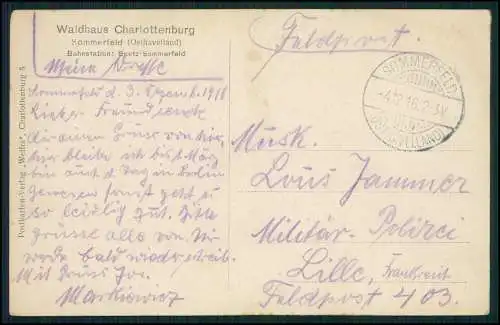 Waldhaus Charlottenburg
Sommerfeld (Osthavelland)
Bahnstation: Beetz-Sommerfeld
Meine Adresse
Sommerfeld d. 3. Dezemb. 1916
Lieber Freund sende
dir einen Gruss von hier,
hier bleibe ich bis März
bin auch d Tag in Berlin
Gewesen sonst geht es
so leidlich gut. Bitte
Grüsse alle von mir
werde bald wiederschreib.
Mit Gruss Jos.
Markiewicz
Postkarten-Verlag „Welfra", Charlottenburg 5
Feldpost.
SOMMERFELD
-4.12.16. 2-3N.
(OSTHAVELLAND)
Musk.
Louis Jammer
Militär-Polizei
Lille, Frankreich
Feldpost 403.